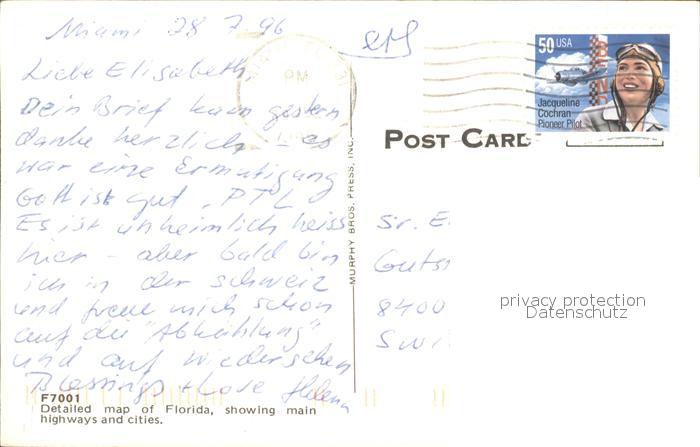 Miami 28 7 96
Liebe Elisabeth,
Dein Brief kam gestern
danke herzlich - es
war eine Ermutigung
Gott ist gut, PTL
Es ist unheimlich heiss
hier - aber bald bin
ich in der Schweiz
und freue mich schon
auf die "Abkühlung"
und auf Wiedersehen
Blessings + Love Helena
F7001
Detailed map of Florida, showing main
highways and cities.
MURPHY BROS. PRESS, INC.
PM
50 USA
Jacqueline
Cochran
Pioneer Pilot
POST CARD
Sr. E
Guts
8400
Swi
privacy protection
Datenschutz